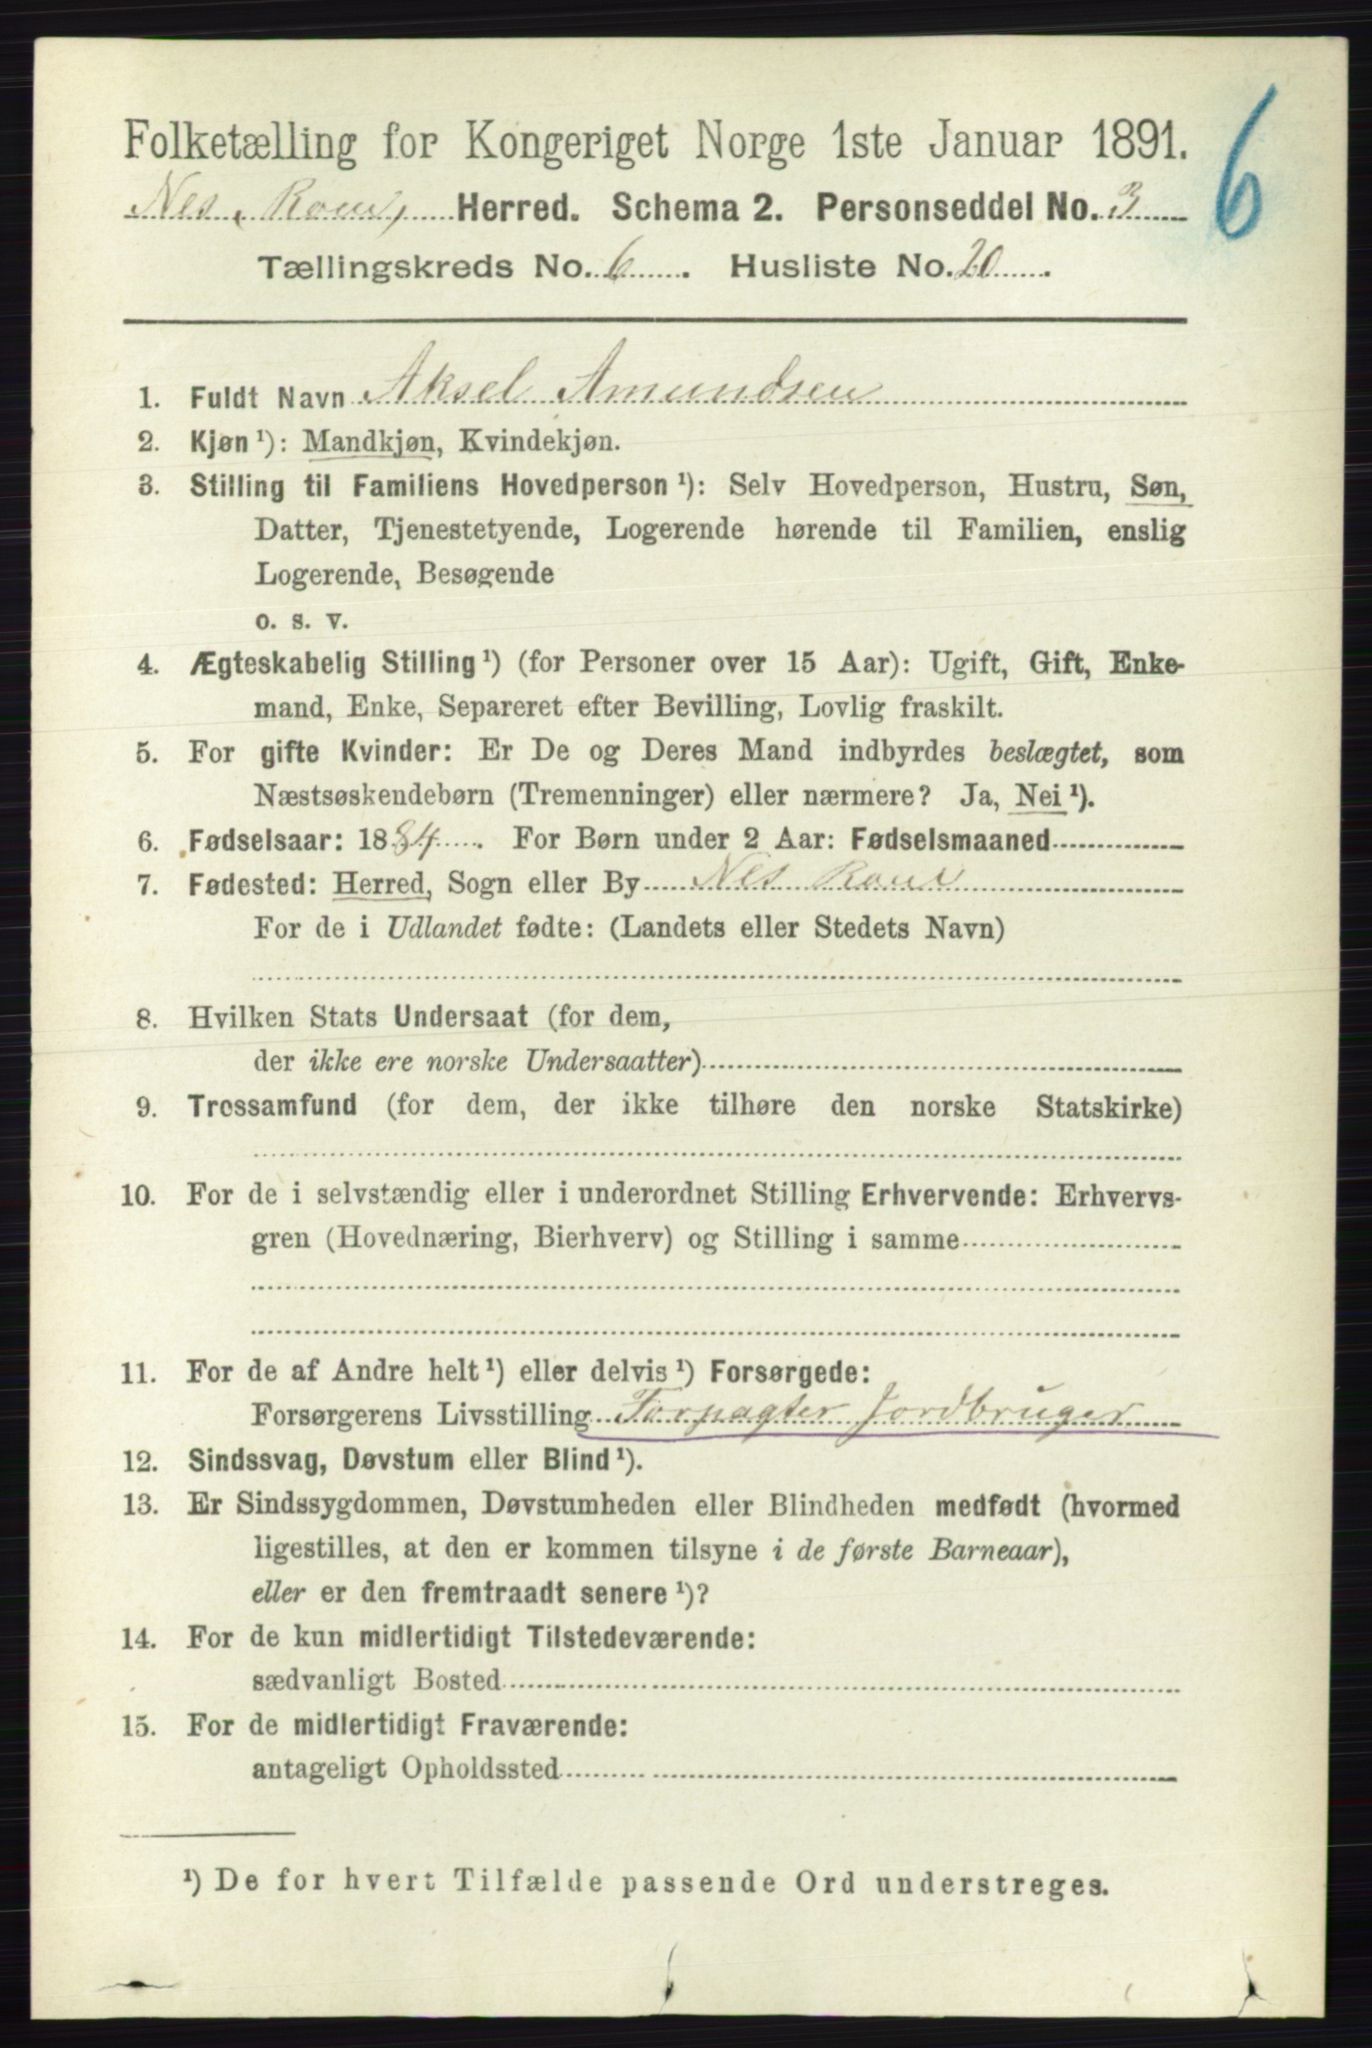 6
Folketælling for Kongeriget Norge 1ste Januar 1891.
Nes, Rom, Herred. Schema 2. Personseddel No. 3
Tællingskreds No. 6. Husliste No. 20.
1. Fuldt Navn Aksel Amundsen
2. Kjøn ¹): Mandkjøn, Kvindekjøn.
3. Stilling til Familiens Hovedperson ¹): Selv Hovedperson, Hustru, Søn,
Datter, Tjenestetyende, Logerende hørende til Familien, enslig
Logerende, Besøgende
o. s. v.
4. Ægteskabelig Stilling ¹) (for Personer over 15 Aar): Ugift, Gift, Enke-
mand, Enke, Separeret efter Bevilling, Lovlig fraskilt.
5. For gifte Kvinder: Er De og Deres Mand indbyrdes beslægtet, som
Næstsøskendebørn (Tremenninger) eller nærmere? Ja, Nei ¹).
6. Fødselsaar: 1884. For Børn under 2 Aar: Fødselsmaaned
7. Fødested: Herred, Sogn eller By Nes Rom
For de i Udlandet fødte: (Landets eller Stedets Navn)
8. Hvilken Stats Undersaat (for dem,
der ikke ere norske Undersaatter)
9. Trossamfund (for dem, der ikke tilhøre den norske Statskirke)
10. For de i selvstændig eller i underordnet Stilling Erhvervende: Erhvervs-
gren (Hovednæring, Bierhverv) og Stilling i samme
11. For de af Andre helt ¹) eller delvis ¹) Forsørgede:
Forsørgerens Livsstilling Forpagter Jordbruger
12. Sindssvag, Døvstum eller Blind ¹).
13. Er Sindssygdommen, Døvstumheden eller Blindheden medfødt (hvormed
ligestilles, at den er kommen tilsyne i de første Barneaar),
eller er den fremtraadt senere ¹)?
14. For de kun midlertidigt Tilstedeværende:
sædvanligt Bosted
15. For de midlertidigt Fraværende:
antageligt Opholdssted
¹) De for hvert Tilfælde passende Ord understreges.